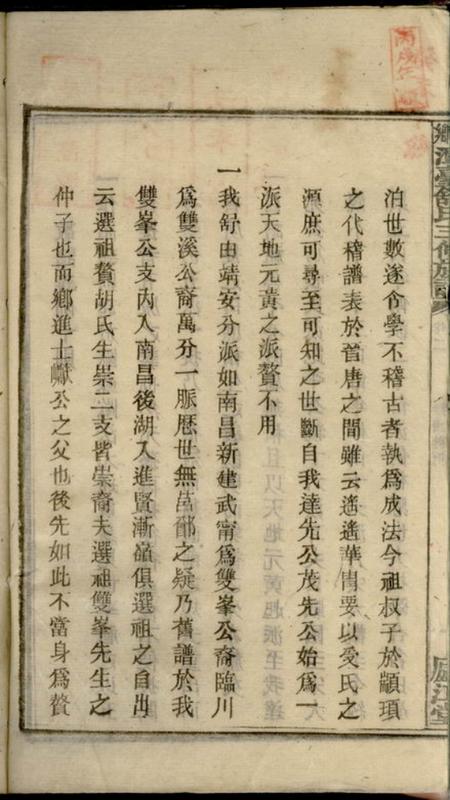 洎世數遂令學不稽古者執爲成法今祖叔子於顓頊
之代稽譜表於晉唐之間雖云遙遙華冑要以受氏之
源庶可尋至可知之世斷自我達先公茂先公始爲一
派天地元黃之派贅不用
一我舒由靖安分派如南昌新建武甯爲雙峯公裔臨川
爲雙溪公裔萬分一脈歷世無莒鄫之疑乃舊譜於我
雙峯公支內入南昌後湖入進賢漸嶺俱選祖之自出
云選祖贅胡氏生崇二支皆崇裔夫選祖雙峯先生之
仲子也而鄉進士巘公之父也後先如此不當身爲贅
廬江堂